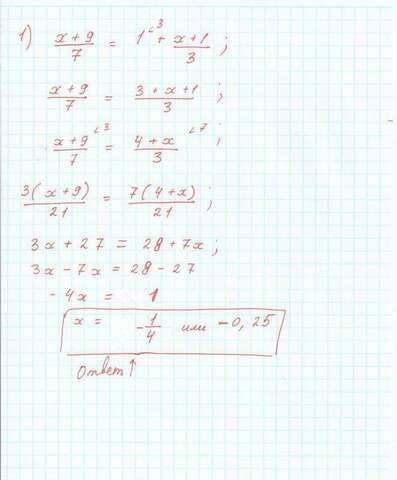 1) (x+9)/7 = 1^(3 + (x+1)/3 ;
(x+9)/7 = (3+x+1)/3 ;
(x+9)/7^(3 = (4+x)/3^(7 ;
3(x+9)/21 = 7(4+x)/21 ;
3x+27 = 28+7x ;
3x-7x = 28-27
-4x = 1
x = -1/4 или -0,25
Ответ↑